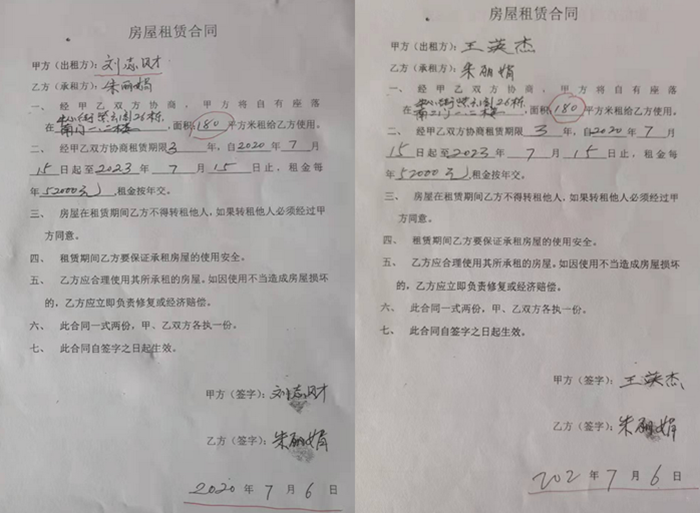 房屋租赁合同
甲方（出租方）：刘志财
乙方（承租方）：朱丽娟
一、 经甲乙双方协商，甲方将自有座落
在 26栋
一二楼，面积180平方米租给乙方使用。
二、 经甲乙双方协商租赁期限3年，自2020年7月
15日起至2023年7月15日止，租金每
年52000元，租金按年交。
三、 房屋在租赁期间乙方不得转租他人，如果转租他人必须经过甲
方同意。
四、 租赁期间乙方要保证承租房屋的使用安全。
五、 乙方应合理使用其所承租的房屋，如因使用不当造成房屋损坏
的，乙方应立即负责修复或经济赔偿。
六、 此合同一式两份，甲、乙双方各执一份。
七、 此合同自签字之日起生效。
甲方（签字）：刘志财
乙方（签字）：朱丽娟
2020年7月6日
房屋租赁合同
甲方（出租方）：王英杰
乙方（承租方）：朱丽娟
一、 经甲乙双方协商，甲方将自有座落
在 26栋
一二楼，面积180平方米租给乙方使用。
二、 经甲乙双方协商租赁期限3年，自2020年7月
15日起至2023年7月15日止，租金每
年52000元，租金按年交。
三、 房屋在租赁期间乙方不得转租他人，如果转租他人必须经过甲
方同意。
四、 租赁期间乙方要保证承租房屋的使用安全。
五、 乙方应合理使用其所承租的房屋，如因使用不当造成房屋损坏
的，乙方应立即负责修复或经济赔偿。
六、 此合同一式两份，甲、乙双方各执一份。
七、 此合同自签字之日起生效。
甲方（签字）：王英杰
乙方（签字）：朱丽娟
202 年7月6日